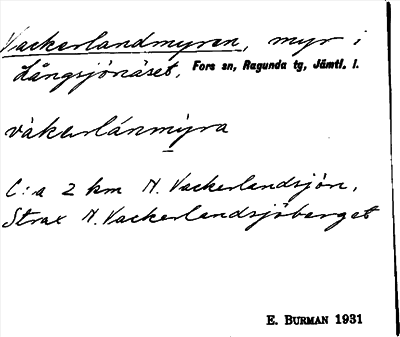 Vackerlandmyren, myr i
Långsjönäset, Fors sn, Ragunda tg, Jämtl. l.
våkerlánmỳra
C:a 2 km N. Vackerlandsjön,
Strax N. Vackerlandsjöberget
E. BURMAN 1931